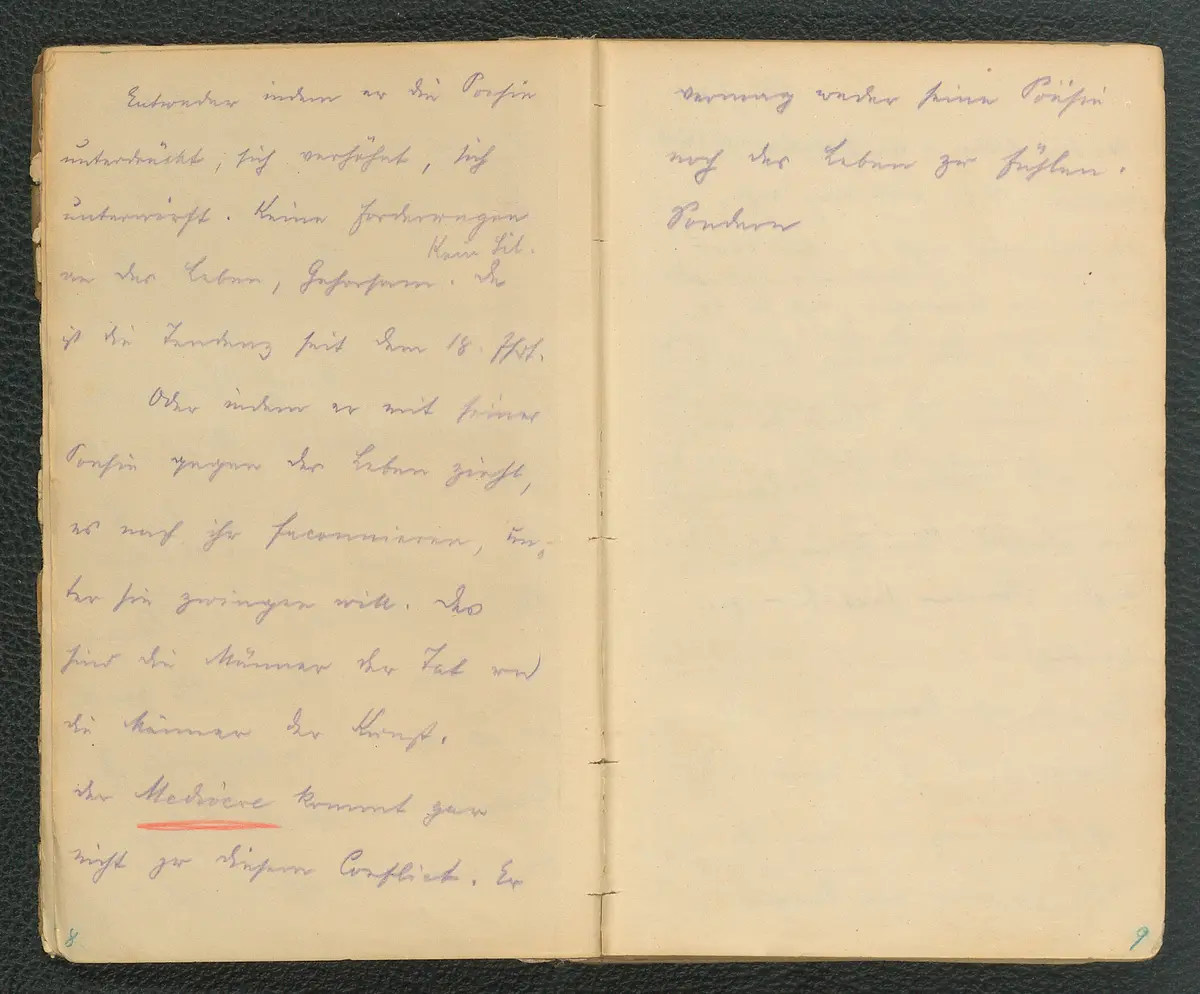 Entweder indem er die Poesie
unterdrückt, sich verhöhnt, sich
unterwirft. Keine Forderungen
Kein Stil.
an das Leben, Gehorsam. Das
ist die Tendenz seit dem 18. Jhrt.
Oder indem er mit seiner
Poesie gegen das Leben zieht,
es nach ihr faconnieren, un-
ter sie zwingen will. Das
sind die Männer der Tat und
die Männer der Kunst.
der Mediocre kommt gar
nicht zu diesem Conflict. Er
8
vermag weder seine Poësie
noch das Leben zu fühlen.
Sondern
9